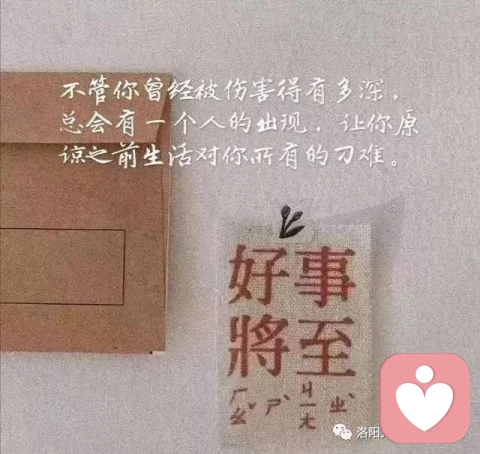 不管你曾经被伤害得有多深，
总会有一个人的出现，让你原
谅之前生活对你所有的刁难。
好事
將至
ㄏㄠˇ ㄕˋ ㄐㄧㄤ ㄓˋ
洛阳